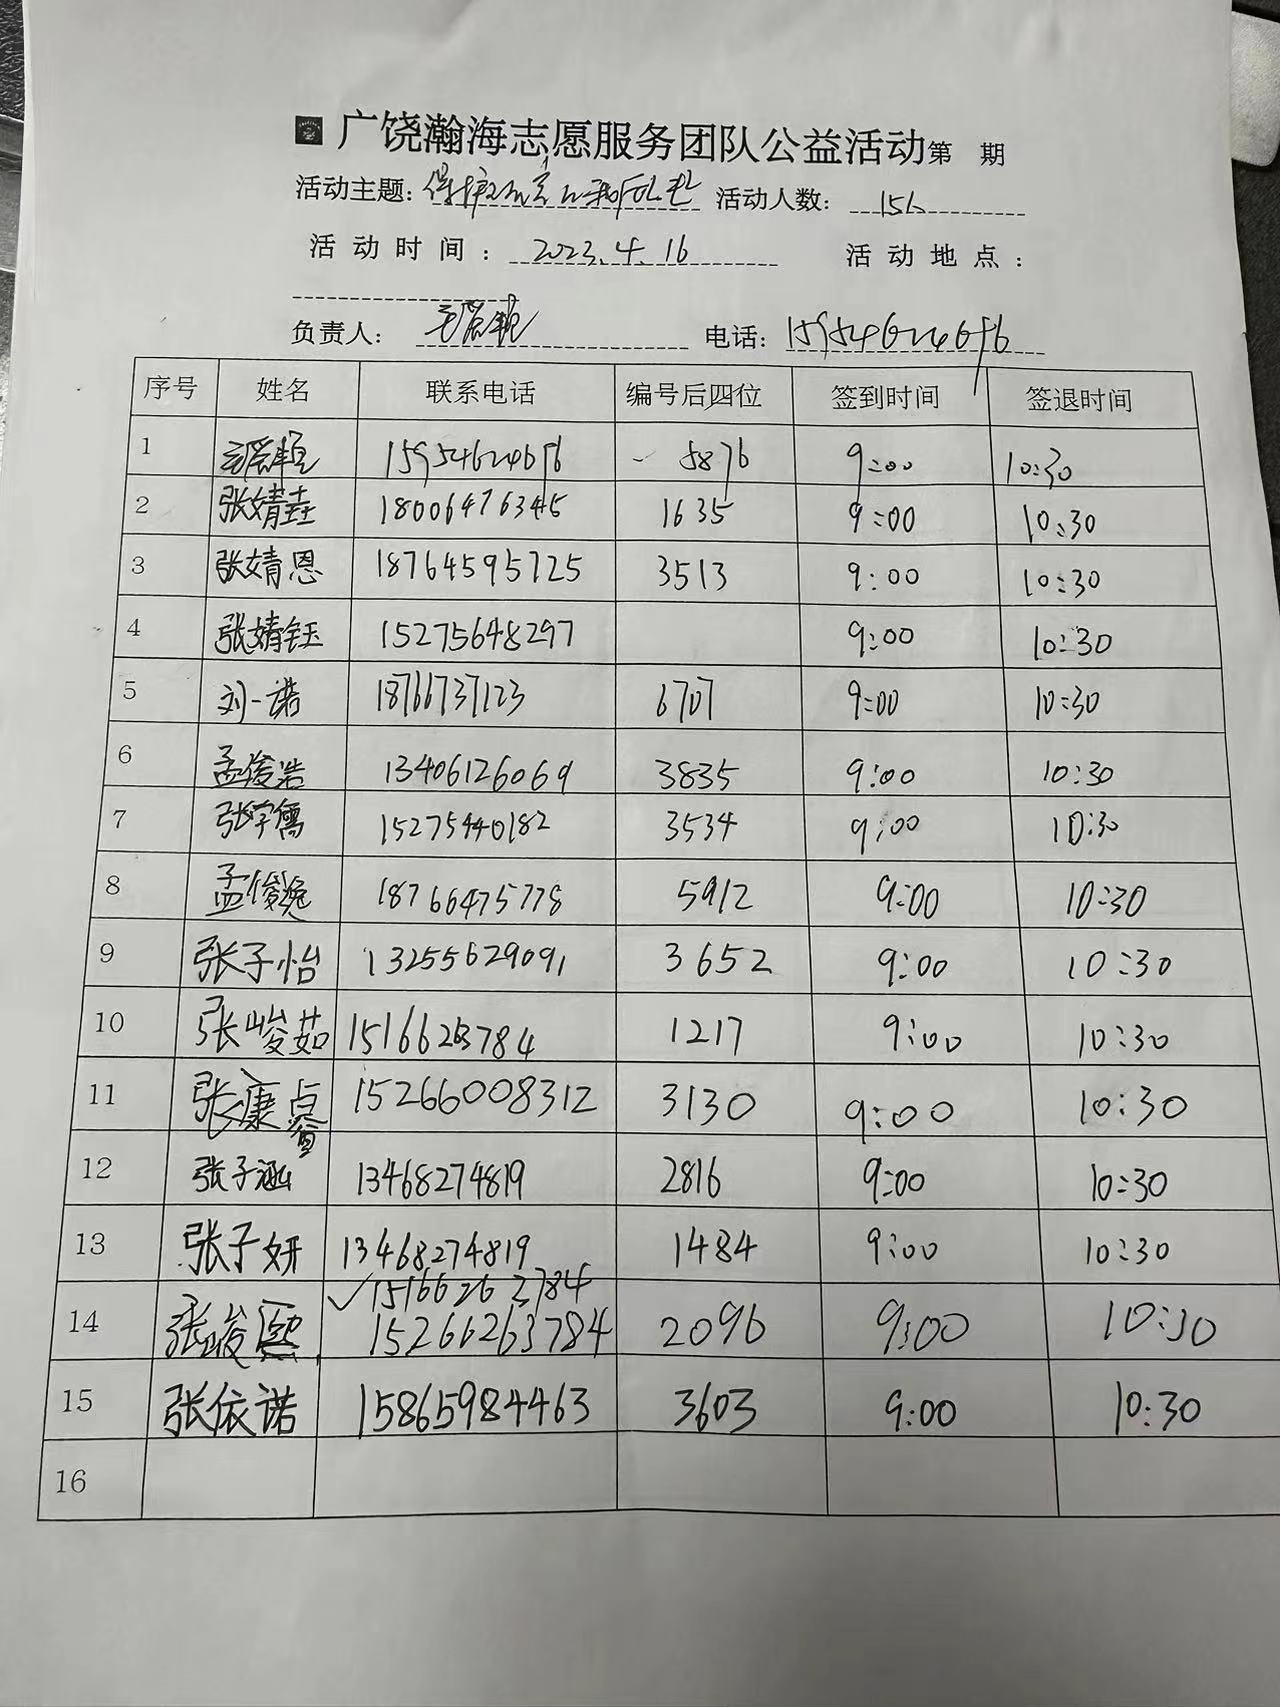 广饶瀚海志愿服务团队公益活动第 期
活动主题: 保护 活动人数: 15人
活动时间: 2023.4.16 活动地点:
负责人: 电话: 15954624696
序号 姓名 联系电话 编号后四位 签到时间 签退时间
1 15954624696 5876 9:00 10:30
2 张婧垚 18006476345 1635 9:00 10:30
3 张婧恩 18764595725 3513 9:00 10:30
4 张婧钰 15275648297 9:00 10:30
5 刘一诺 18766737123 6707 9:00 10:30
6 孟俊浩 13406126069 3835 9:00 10:30
7 张学儒 15275440182 3534 9:00 10:30
8 孟俊逸 18766475778 5912 9:00 10:30
9 张子怡 13255629091 3652 9:00 10:30
10 张峻茹 15166263784 1217 9:00 10:30
11 张康睿 15266008312 3130 9:00 10:30
12 张子涵 13468274819 2816 9:00 10:30
13 张子妍 13468274819 1484 9:00 10:30
✓15166263784
14 张峻熙 15266263784 2096 9:00 10:30
15 张依诺 15865984463 3603 9:00 10:30
16